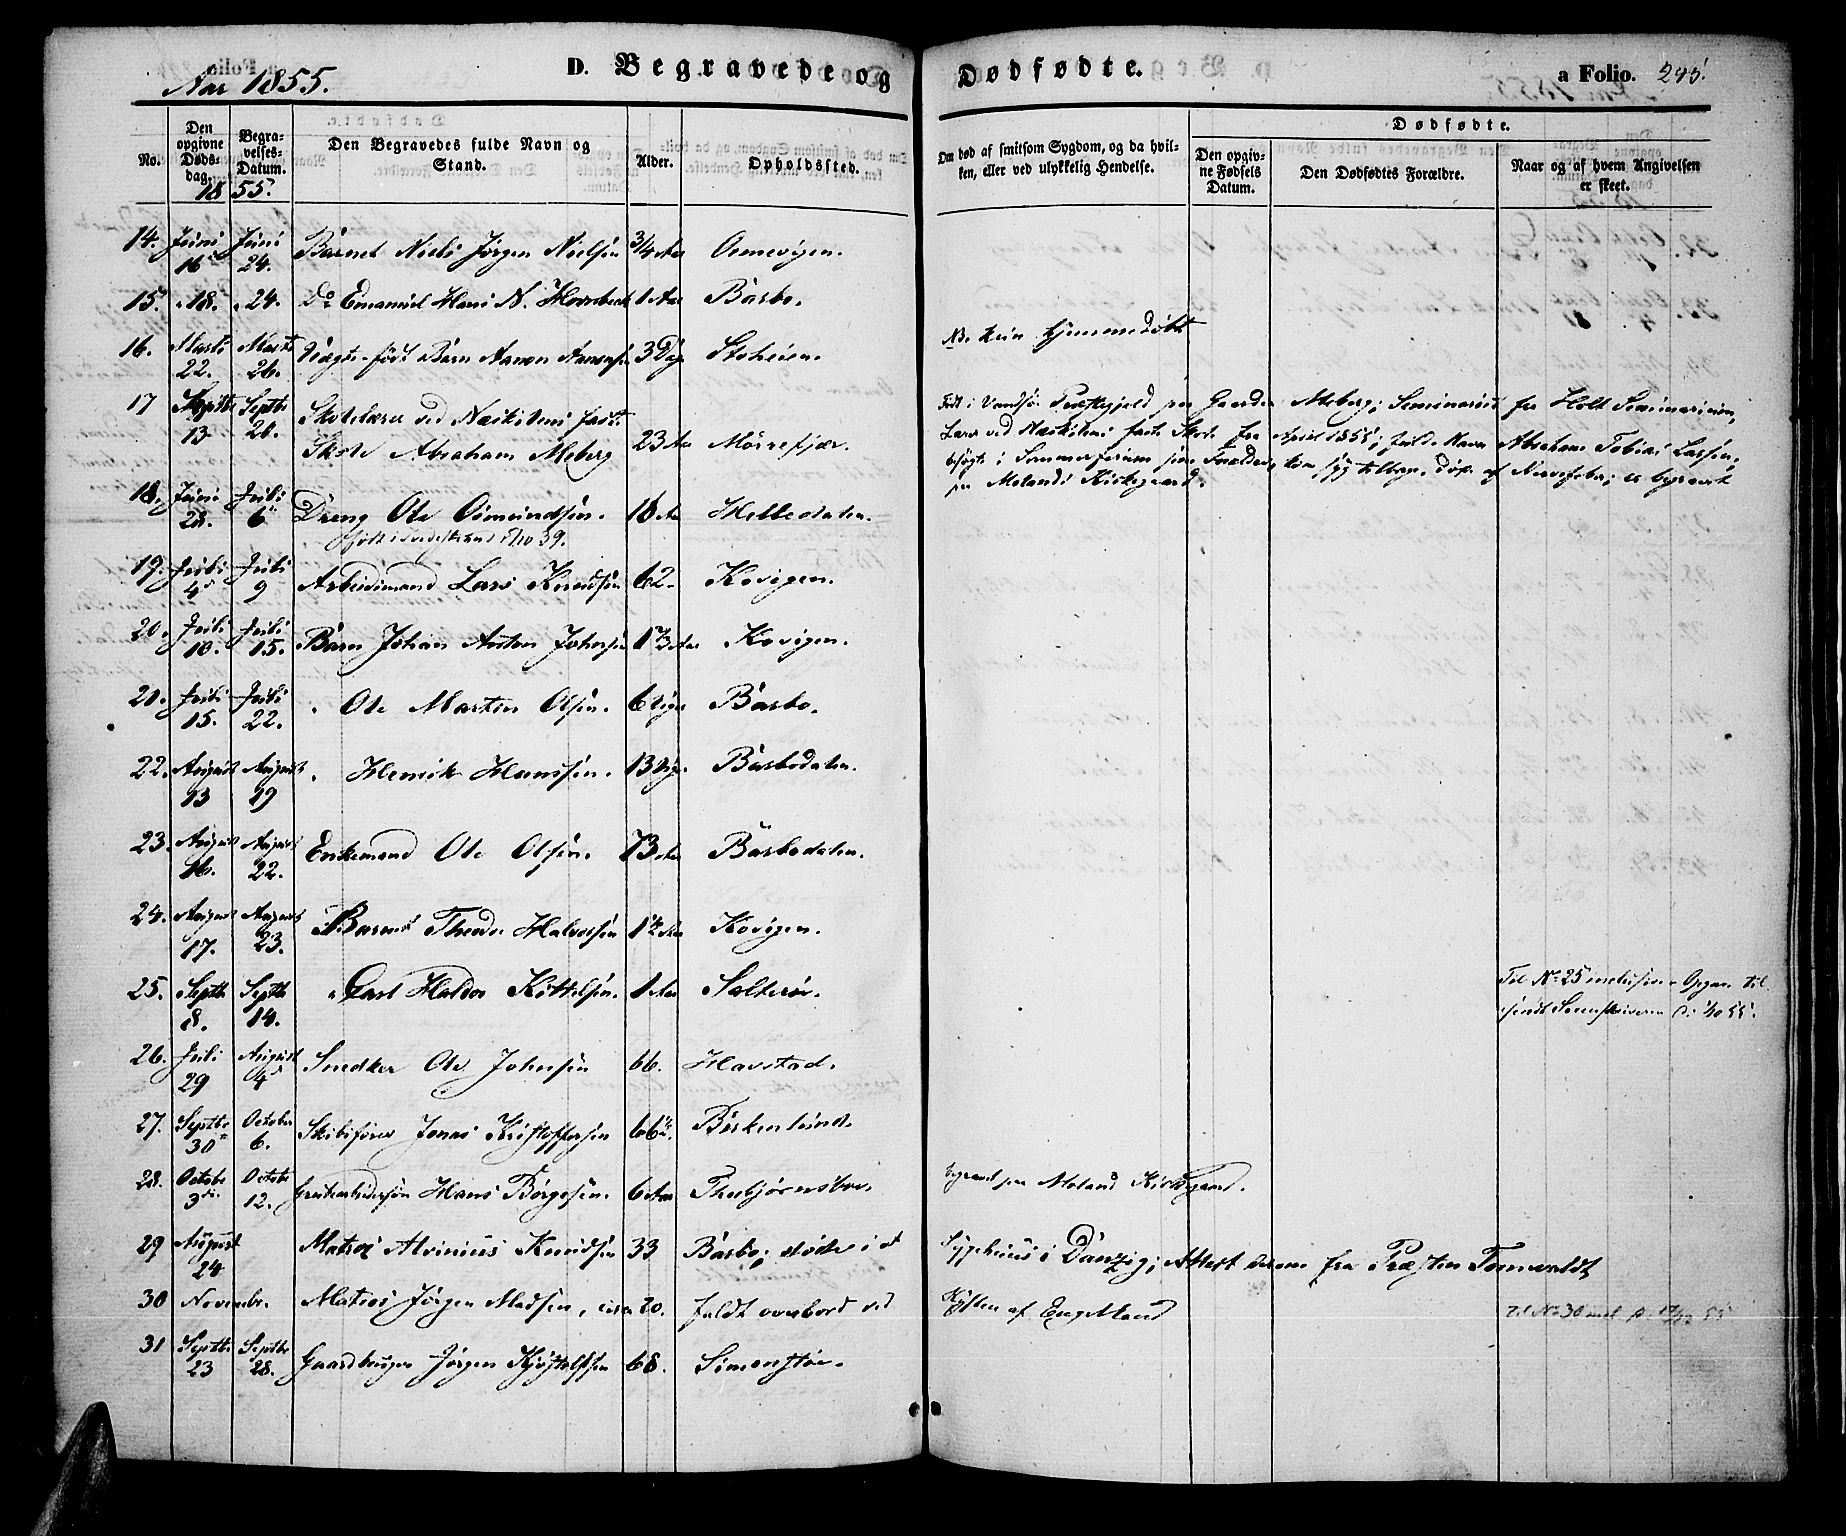 Aar 1855.
D. Begravede og Dødfødte.
a Folio. 245.
No.
Den opgivne Døds-dag.
Begra-velses-Datum.
1855.
Den Begravedes fulde Navn og Stand.
Alder.
Opholdssted.
Om død af smitsom Sygdom, og da hvil-ken, eller ved ulykkelig Hendelse.
Dødfødte.
Den opgiv-ne Fødsels Datum.
Den Dødfødtes Forældre.
Naar og af hvem Angivelsen er skeet.
14. Juni 16 Juni 24. Barnet Niels Jørgen Nielsen 3/4 Aar
15. " 18. " 24. Do Emanuel Hans N. Hornbeck 1 Aar Barbo.
16. Marts 22. Marts 26. Uægte født Barn Aanon Aanonsen 3 Dage Stoheien. NB. kun hjemmedøbt
17 Septbr 13 Septbr 20. Skolelærer ved Næskilens faste
Skole Abraham Meberg 23 Aar Mørrefjær.
Født i Vandsø Præstegjeld paa Gaarden Meberg; Seminarist fra Holt Seminarium,
Lærer ved Næskilens faste Skole fra April 1855; fulde Navn Abraham Tobias Larsen,
besøgte i Sommerferien sine Forældre, kom syg tilbage, døde af Nervefeber; er begravet
paa Molands Kirkegaard.
18. Juni 28. Juli 6 Dreng Ole Osmundsen. 18 Aar Helledalen.
født i Tvedestrand 39.
19. Juli 4 Juli 9 Arbeidsmand Lars Knudsen 62 Kovigen.
20. Juli 10. Juli 15. Barn Johan Anton Johnsen 1 Aar Kovigen.
20. Juli 15. Juli 22. " Ole Martin Olsen. 6 Uger Barbo.
22. August 13 August 19 " Henrik Hansen. 13 Uger Barbodalen.
23. August 16. August 22. Enkemand Ole Olsen. 73 Aar Barbodalen.
24. August 17. August 23. Barnet Theodor Halvorsen 1 1/2 Aar Kovigen.
25. Septbr 8. Septbr 14. " Carl Haldor Kittelsen. 1 Aar Salterø.
Til No 25 inclusive Opgave til-
sendt Sorenskriveren 55.
26. Juli 29 August 4 Snedker Ole Johnsen 66. Havstad.
27. Septbr 30 October 6. Skibsfører Jonas Kristoffersen 66 1/2. Birkenlund.
28. Octobr 3 Octobr 12. Hans Børgesen. 6 Aar Thorbjørnsbu. begravet paa Moland Kirkegaard.
29 August 24 Matros Alvinius Knudsen 33 Barbo; døde i et Syghuus i Danzig; Attest derom fra Præsten Tornwaldt
30 Novembr. Matros Jørgen Madsen, circa 20. faldt overbord ved Kysten af Engeland
Til No 30 incl. 55
31 Septbr 23 Septbr 28. Gaardbruger Jørgen Kjøstolfsen 68. Simonstø.